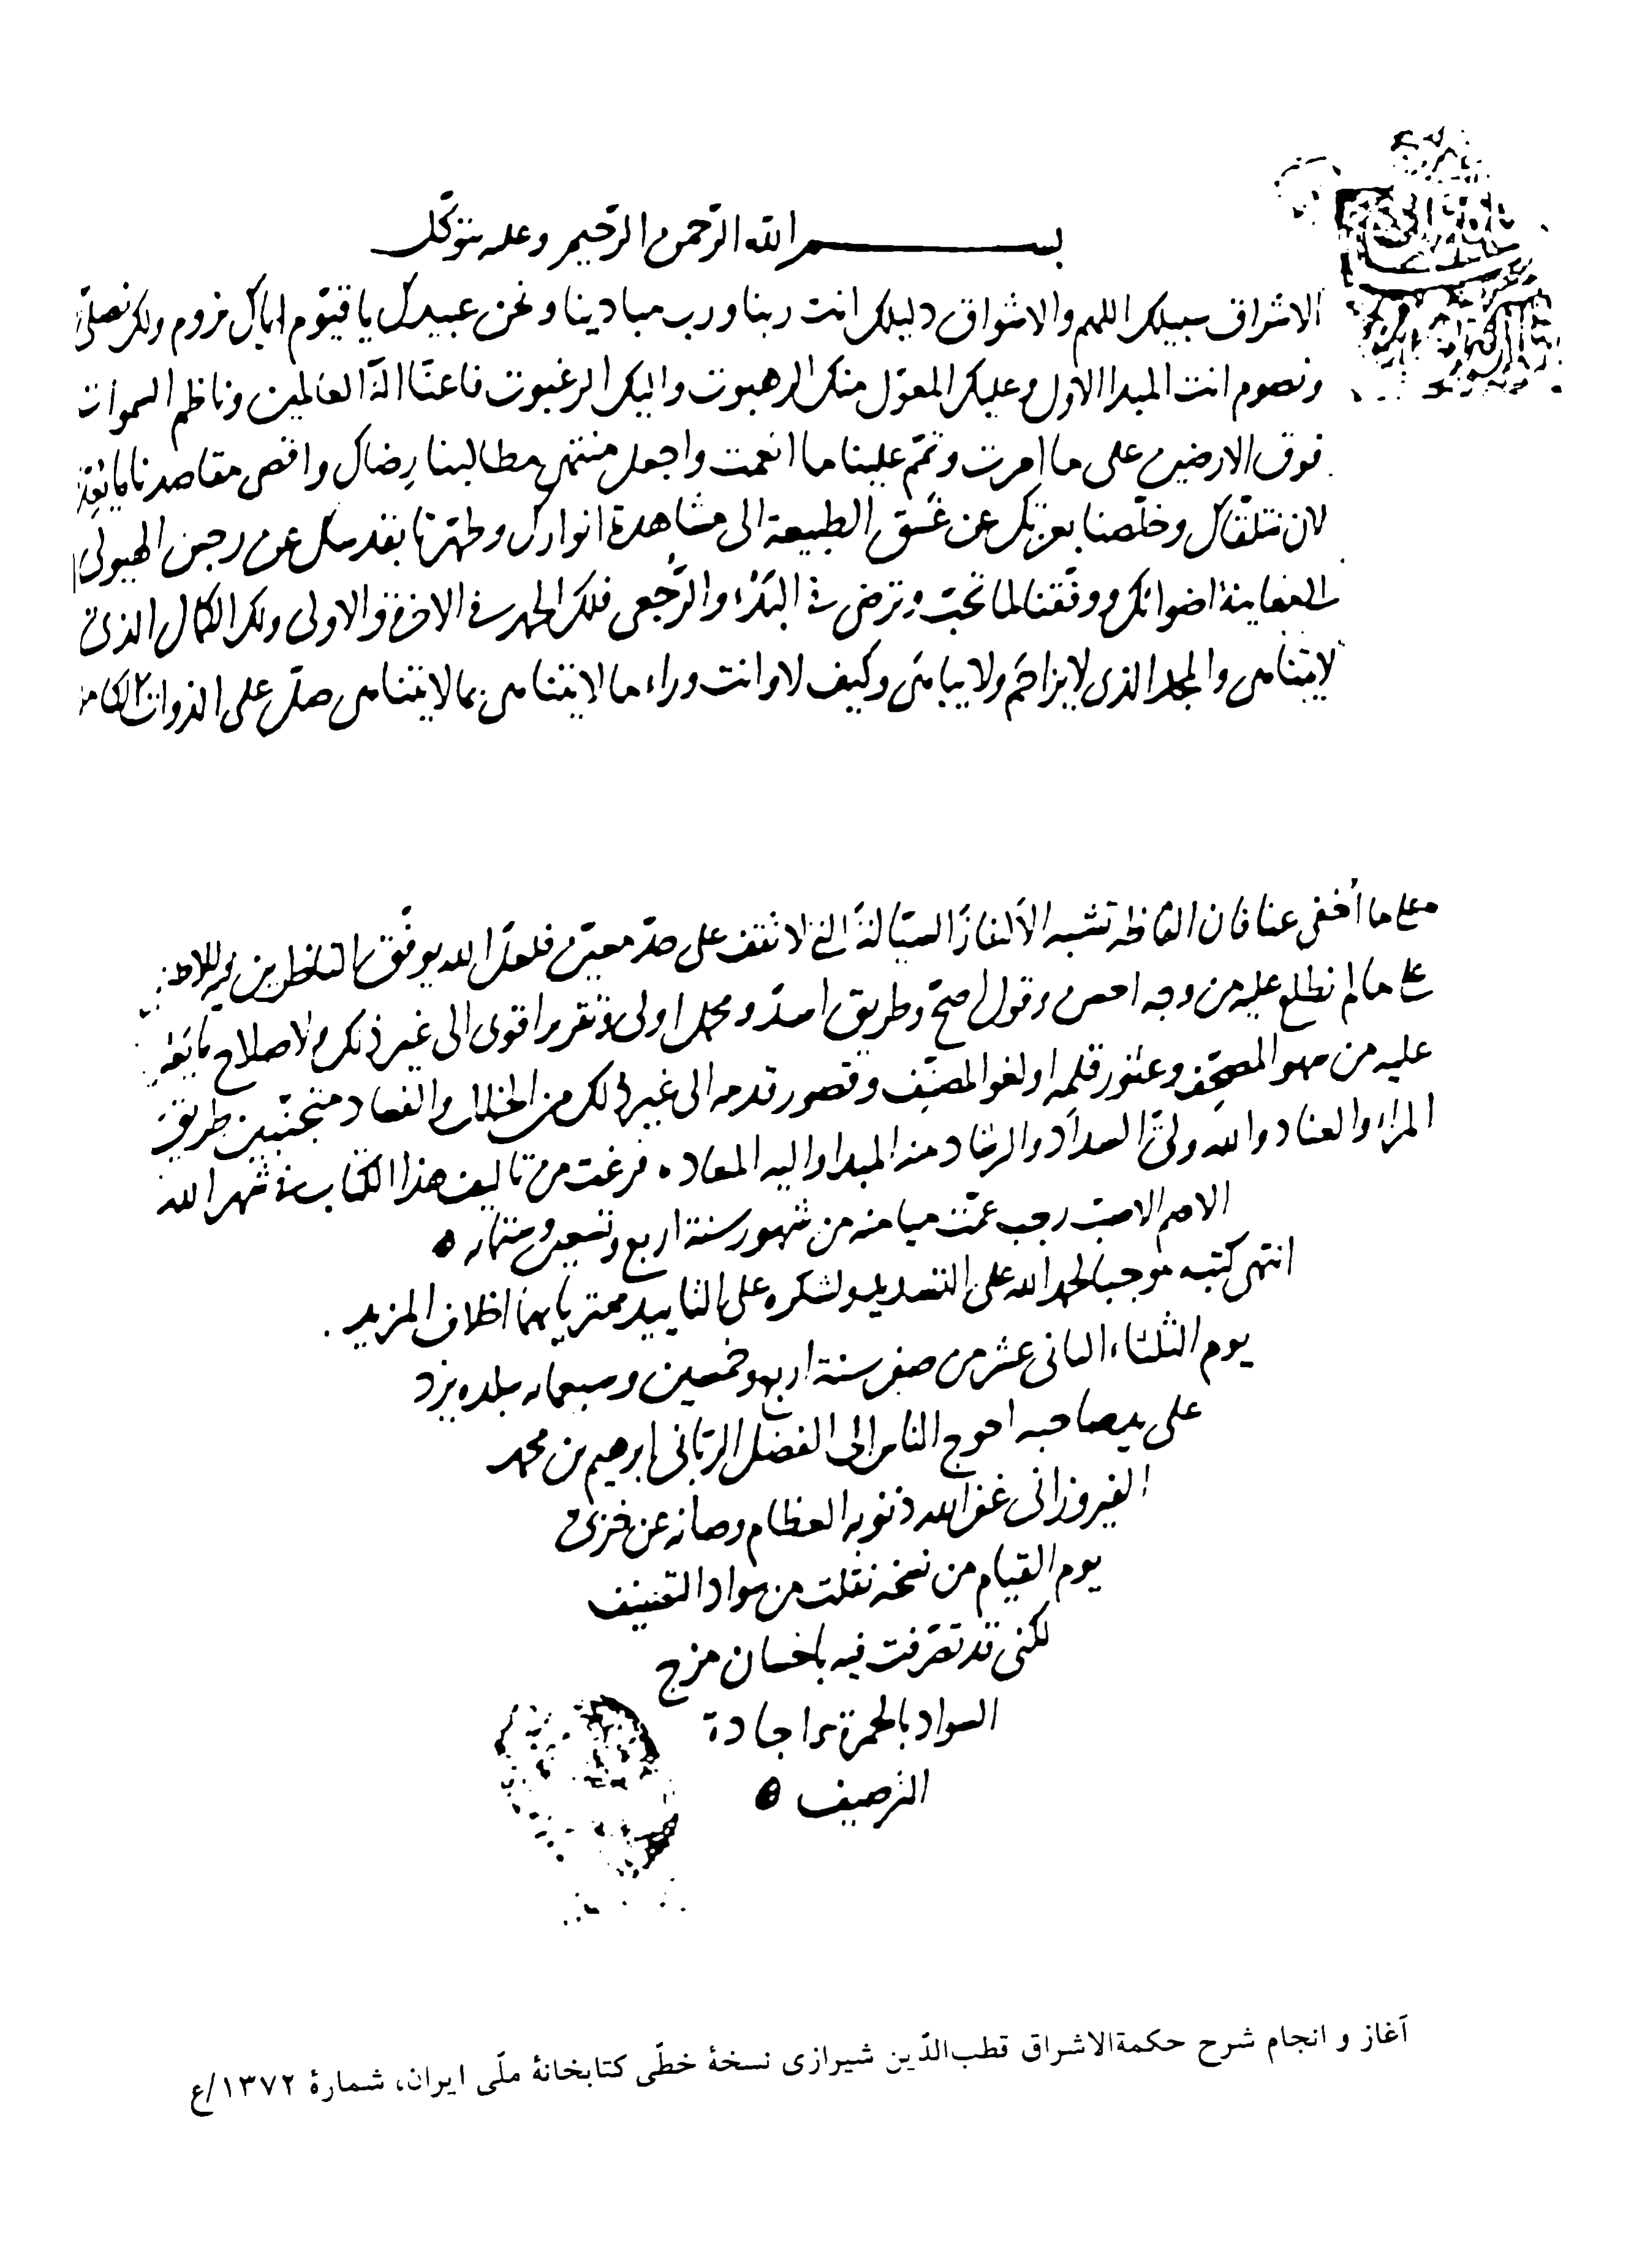 بسم الله الرحمن الرحيم وعليه نتوكّل
الاشراق سبيلك اللهم والاشواق دليلك انت ربنا ورب مبادينا ونحن عبيدك يا قيّوم اياك نروم ولك نصلّى
ونصوم انت المبدا الاول وعليك المعوّل منك الرهبوت واليك الرغبوت فاعنّا الهَ العالمين وناظم السموات
فوق الارضين على ما امرت وتمّم علينا ما انعمت واجعل منتهى مطالبنا رِضاك واقصى مقاصدنا ما يُعِدّنا
لان نتلقّاك وخلّصنا بعزتك عن غَسَق الطبيعة الى مشاهدة انوارك وطهّرنا بقدسك عن رجس الهيولى
لمعاينة اضوائك ووفّقنا لما تحبّ وترضى فى البَدْء والرُجعى فلك الحمد فى الاخرة والاولى ولك الكمال الذى
لا يتناهى والمجد الذى لا يزاحَم ولا يباهَى وكيف لا وانت وراء ما لا يتناهى بما لا يتناهى صلّ على الذوات الكاملة
ما أخفى عنا فان الفاظه تشبه الألغازَ السيّالةَ التى لا تقف على حدّ معيّن فلعلّ الله يوفّق الناظرين فيه للاطلاع
على ما لم نطلع عليه من وجه احسن وقول اصحّ وطريق اسدّ ومحمل اولى وتقرير اقوى الى غير ذلك ولاصلاح ما يَقِفُ
عليه من سهو المصحِّف وعثور قلمه او لغو المصنِّف وقصور قدمه الى غير ذلك من الخلل والفساد متجنّبين طريق
المراء والعناد والله ولىّ السداد والرشاد منه المبدا واليه المعاد ه فرغت من تاليف هذا الكتاب فى شهر الله
الاصم الاصبّ رجب عمّت ميامنه من شهور سنة اربع وتسعين وستمائه ه
انتهى كتبه موجبا لحمد الله على التسديد ولشكره على التاييد ممتريا بهما اخلاف المزيد .
يوم الثلثاء الثانى عشر من صفر سنة اربع وخمسين وسبعمائه ببلده يزد
على يد صاحبه احوج الناس الى الفضل الربّانى ابرهيم بن محمد
الفيروزانى غفر الله ذنوبه العظام وصانه عن خزى
يوم القيام من نسخه نقلت من سواد التصنيف
لكنى قد تصرّفت فيه باحسان مزج
السواد بالحمرة واجادة
الترصيف ه
آغاز و انجام شرح حكمةالاشراق قطب‌الدّين شيرازى نسخهٔ خطّى كتابخانهٔ ملّى ايران، شمارهٔ ۱۳۷۲/ع